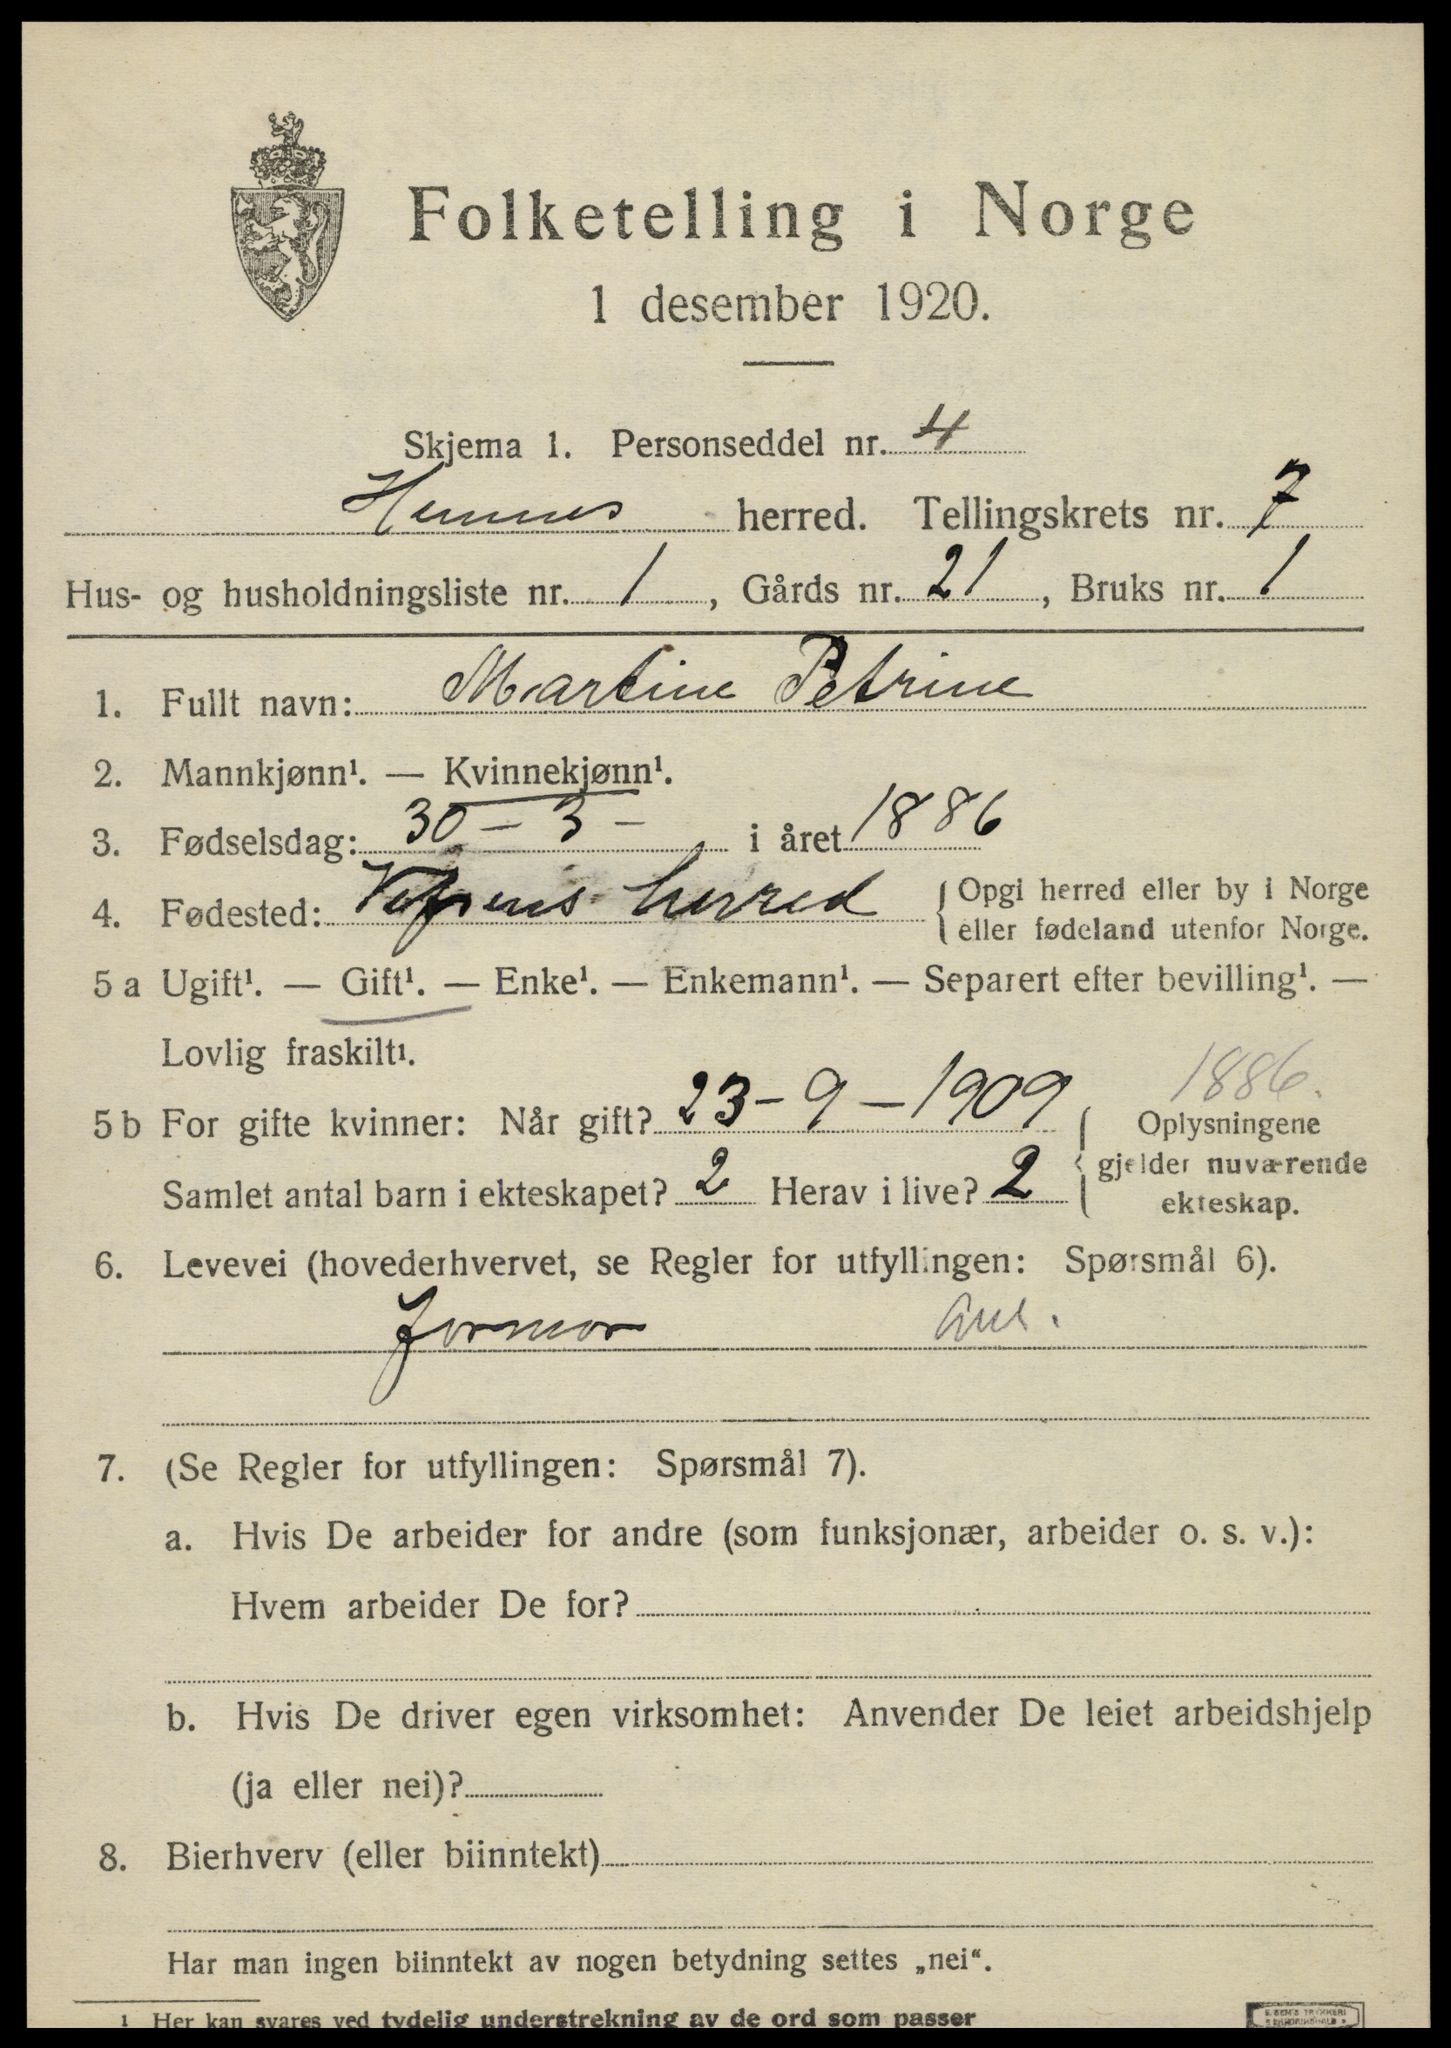 Folketelling i Norge
1 desember 1920.
Skjema 1. Personseddel nr. 4
Hemnes herred. Tellingskrets nr. 7
Hus- og husholdningsliste nr. 1, Gårds nr. 21, Bruks nr. 1
1. Fullt navn: Martine Petrine
2. Mannkjønn¹. — Kvinnekjønn¹.
3. Fødselsdag: 30 - 3 - i året 1886
4. Fødested: Vefsens herred {Opgi herred eller by i Norge
eller fødeland utenfor Norge.
5 a Ugift¹. — Gift¹. — Enke¹. — Enkemann¹. — Separert efter bevilling¹. —
Lovlig fraskilt¹.
1886.
5 b For gifte kvinner: Når gift? 23 - 9 - 1909 { Oplysningene
Samlet antal barn i ekteskapet? 2 Herav i live? 2 gjelder nuværende
ekteskap.
6. Levevei (hovederhvervet, se Regler for utfyllingen: Spørsmål 6).
Jormor
7. (Se Regler for utfyllingen: Spørsmål 7).
a. Hvis De arbeider for andre (som funksjonær, arbeider o. s. v.):
Hvem arbeider De for?
b. Hvis De driver egen virksomhet: Anvender De leiet arbeidshjelp
(ja eller nei)?
8. Bierhverv (eller biinntekt)
Har man ingen biinntekt av nogen betydning settes „nei“.
¹ Her kan svares ved tydelig understrekning av de ord som passer